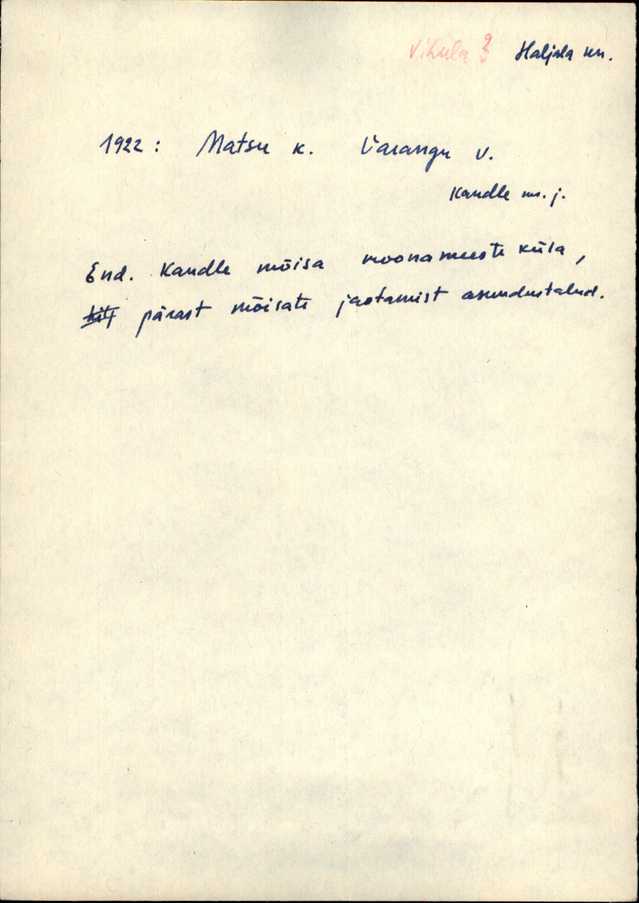 Vihula ? Haljala kn.
1922: Matsu k. Varangu v.
Kandle ms. j.
End. Kandle mõisa moonameeste küla,
pärast mõisate jaotamist asundustalud.